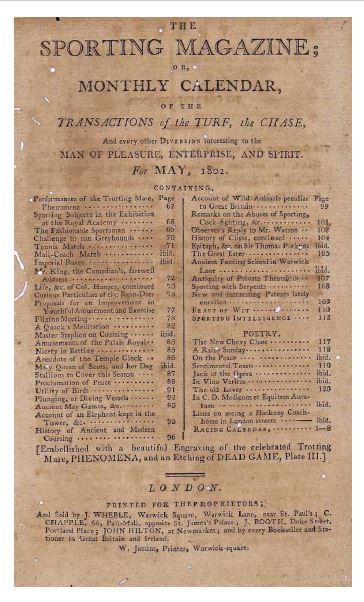 THE
SPORTING MAGAZINE;
OR,
MONTHLY CALENDAR,
OF THE
TRANSACTIONS of the TURF, the CHASE,
And every other DIVERSION interesting to the
MAN OF PLEASURE, ENTERPRISE, AND SPIRIT.
For MAY, 1802.
CONTAINING,
Performances of the Trotting Mare, Page
Phenomena 67
Sporting Subjects in the Exhibition
at the Royal Academy 68
The Fashionable Sportsman 65
Challenge to run Greyhounds 70
Tennis Match 71
Mail-Coach Match ibid.
Imperial Boxes ibid.
Mr. King, the Comedian's, farewell
Address 72
Life, &c. of Col. Hanger, continued 73
Curious Particulars of the Rein-Deer 75
Proposals for an Improvement in
Youthful Amusement and Exercise 77
Flixton Meeting 78
A Quack's Meditation 82
Master Stephen on Coursing ibid.
Amusements of the Palais Royal 83
Nicety in Betting 85
Anecdote of the Temple Clock 86
Mary Queen of Scots, and her Dog ibid.
Stallions to Cover this Season 87
Proclamation of Peace 88
Utility of Birds 91
Plunging, or Diving Vessels 92
Ancient May Games, &c. 93
Account of an Elephant kept in the
Tower, &c. 95
History of Ancient and Modern
Coursing 96
Account of Wild Animals peculiar Page
to Great Britain 99
Remarks on the Abuses of Sporting,
Cock-fighting, &c. 101
Observer's Reply to Mr. Watson 102
History of Clubs, continued 104
Epitaph, &c. on Sir Thomas Parkyns ibid.
The Great Eater 105
Ancient Fencing School in Warwick
Lane ibid.
Antiquity of Private Theatricals 107
Sporting with Serpents 108
New and interesting Patents lately
enrolled 109
FEAST OF WIT 110
SPORTING INTELLIGENCE 112
POETRY.
The New Chevy Chase 117
A Rainy Sunday 118
On the Peace ibid.
Sentimental Toasts 119
Jack at the Opera ibid.
In Vino Veritas ibid.
The old Lover 120
In C. D. Medicum et Equitem
ibid.
Lines on seeing a Hackney Coach-
horse in London streets ibid.
RACING CALENDAR, 1—8
[Embellished with a beautiful Engraving of the celebrated Trotting
Mare, PHENOMENA, and an Etching of DEAD GAME, Plate III.]
LONDON.
PRINTED FOR THE PROPRIETORS;
And Sold by J. WHEBLE, Warwick Square, Warwick Lane, near St. Paul's; C.
CHAPPLE, 66, Pall-Mall, opposite St. James's Palace; J. BOOTH, Duke Street,
Portland Place; JOHN HILTON, at Newmarket; and by every Bookseller and Sta-
tioner in Great Britain and Ireland.
W. Justins, Printer, Warwick-square.